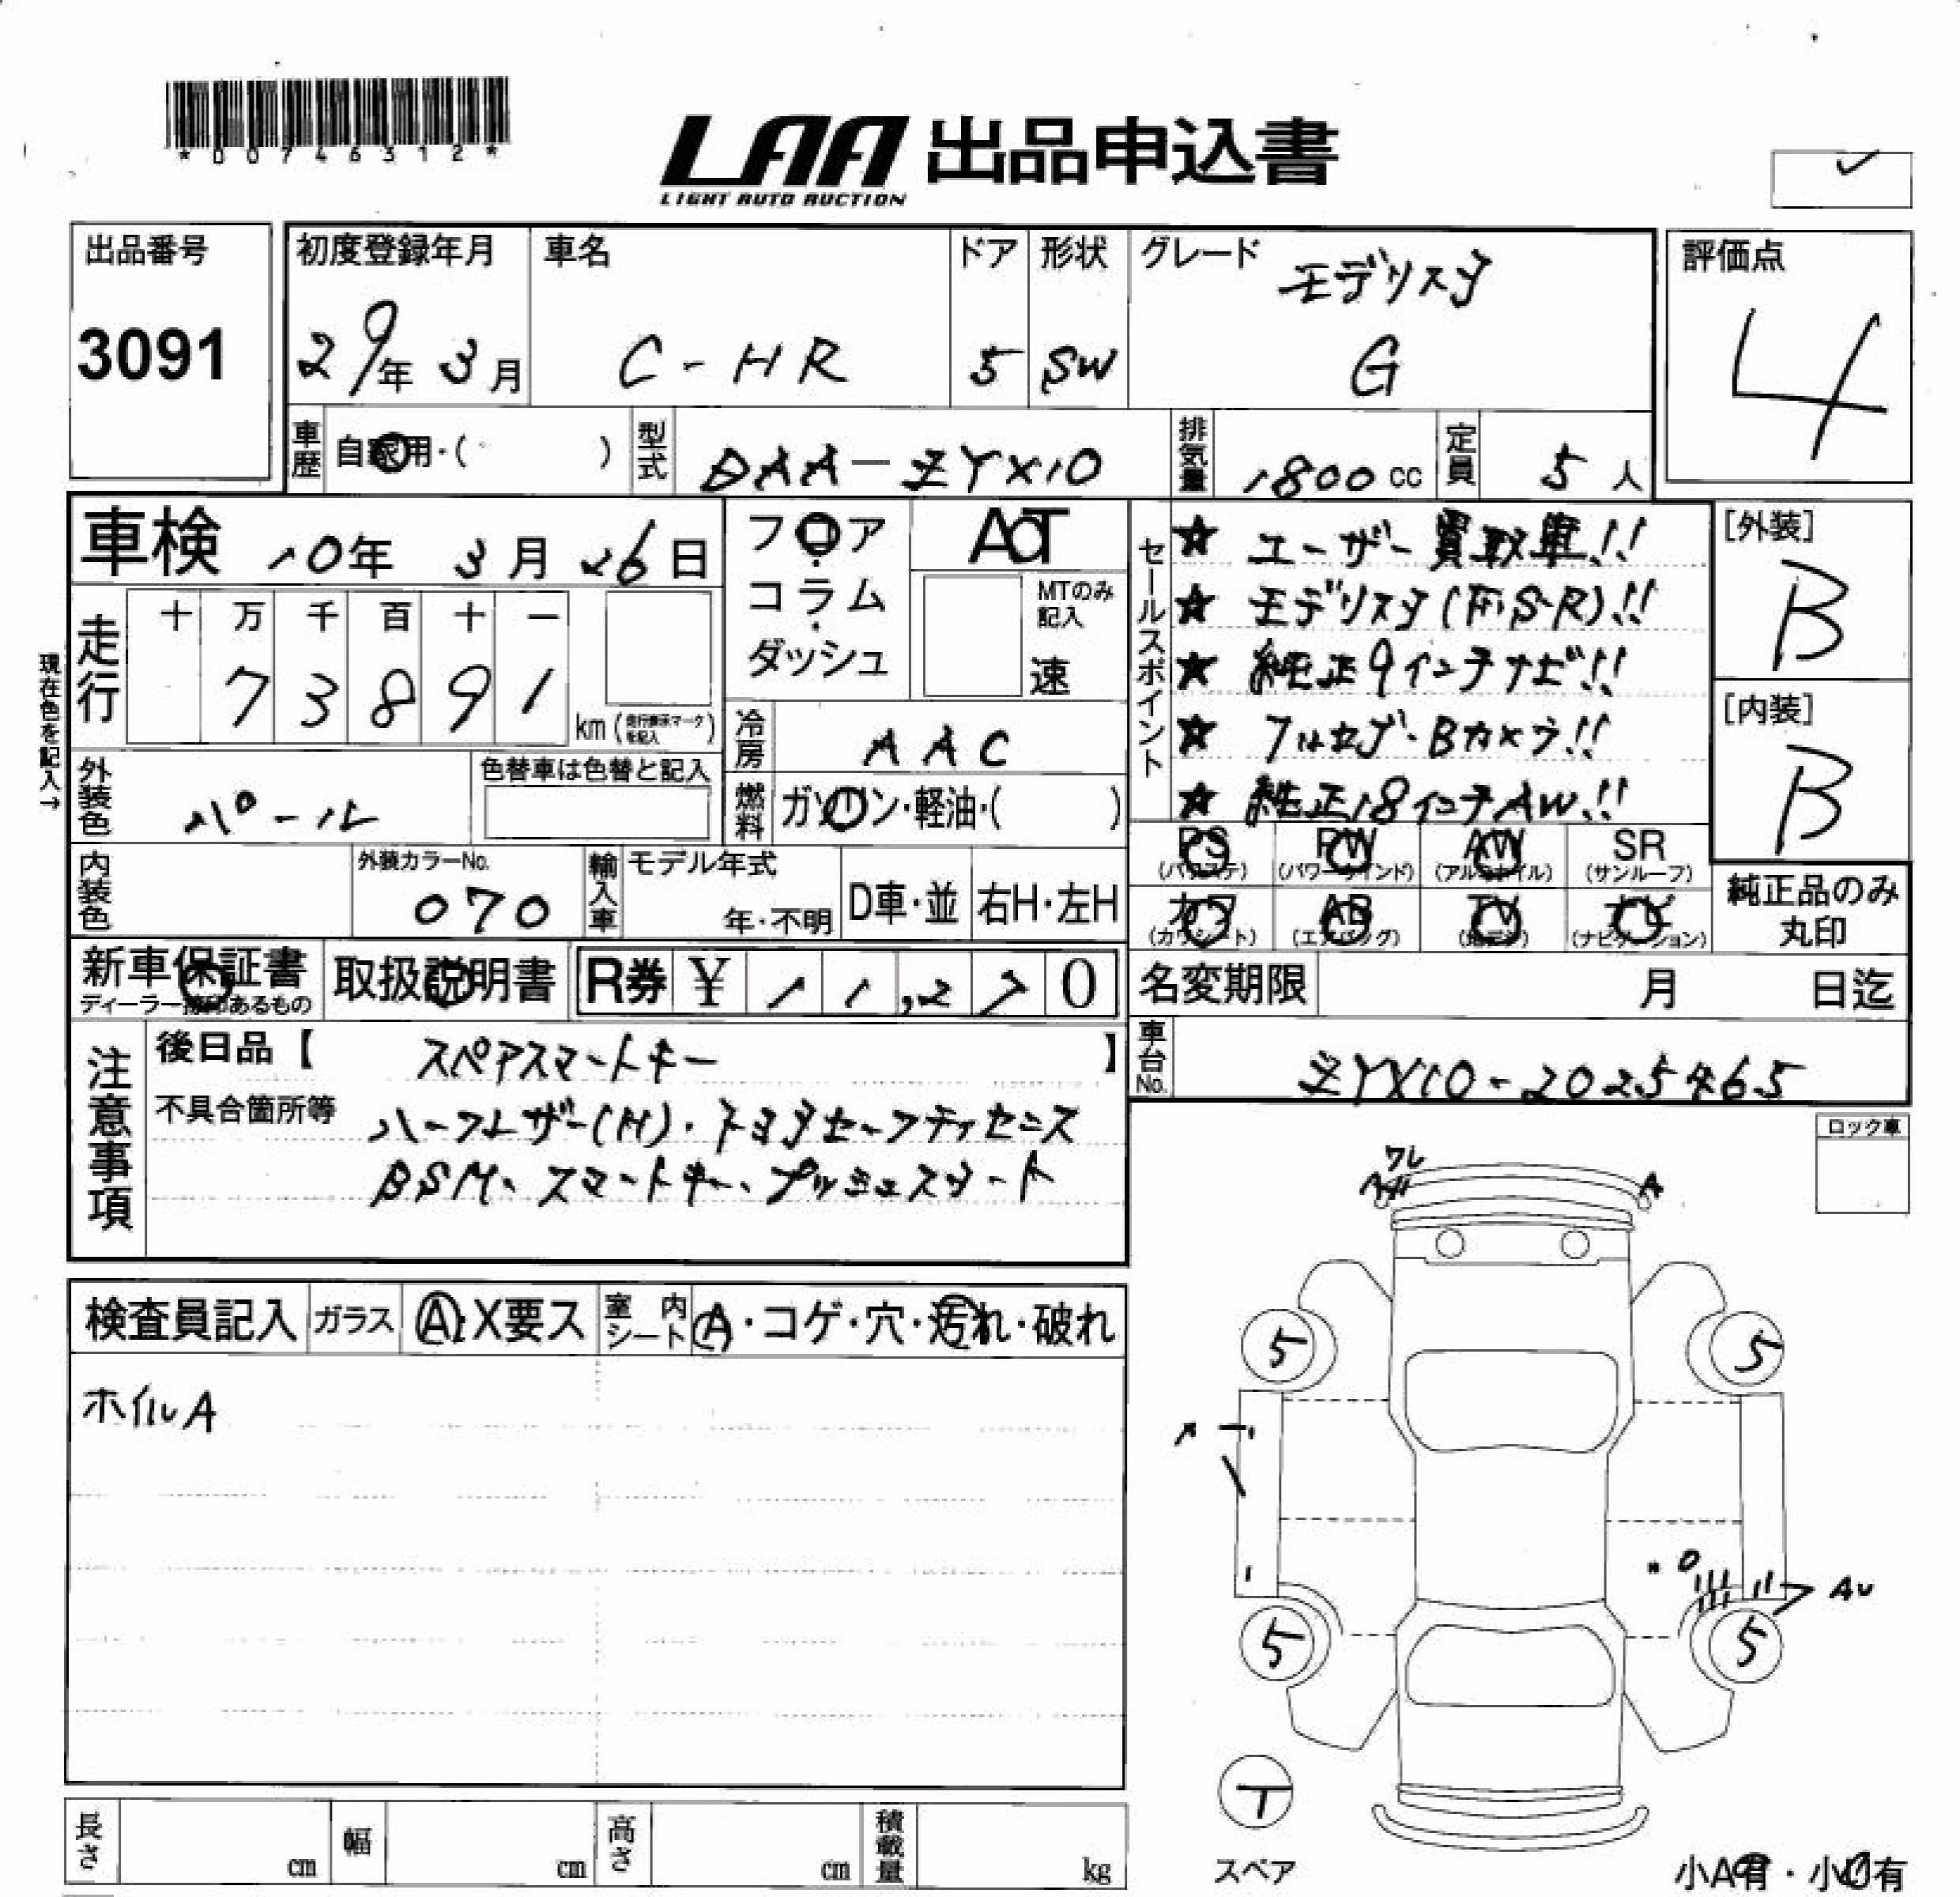 *00746312*
LAA 出品申込書
LIGHT AUTO AUCTION
出品番号
3091
初度登録年月
29年 3月
車名
C-HR
ドア
5
形状
SW
グレード
モデリスタ
G
評価点
4
車歴
自家用・( )
型式
DAA-ZYX10
排気量
1800 cc
定員
5 人
車検 10年 3月 26日
フロア
コラム
ダッシュ
AT
MTのみ
記入
速
セールスポイント
★ ユーザー買取車!!
★ モデリスタ(F・S・R)!!
★ 純正9インチナビ!!
★ フルセグ・Bカメラ!!
★ 純正18インチAW!!
[外装]
B
[内装]
B
現在色を記入→
走行
十 万 千 百 十 一
7 3 8 9 1
km (走行表示マークを記入)
冷房
AAC
外装色
パール
色替車は色替と記入
燃料
ガソリン・軽油・( )
PS
(パワステ)
PW
(パワーウインド)
AW
(アルミホイル)
SR
(サンルーフ)
カワ
(カワシート)
AB
(エアバッグ)
TV
(地デジ)
ナビ
(ナビゲーション)
純正品のみ
丸印
内装色
外装カラーNo.
070
輸入車
モデル年式
年・不明
D車・並
右H・左H
新車保証書
ディーラー捺印あるもの
取扱説明書
R券 ¥ 11,270
名変期限 月 日迄
車台No.
ZYX10-2025465
注意事項
後日品【 スペアスマートキー 】
不具合箇所等 ハーフレザー(H)・トヨタセーフティセンス
BSM、スマートキー、プッシュスタート
ロック車
ワレ
A
検査員記入
ガラス
A・X要ス
室内シート
A・コゲ・穴・汚れ・破れ
ホイルA
5
5
AU
5
5
T
スペア
小A有・小U有
長さ
cm
幅
cm
高さ
cm
積載量
kg